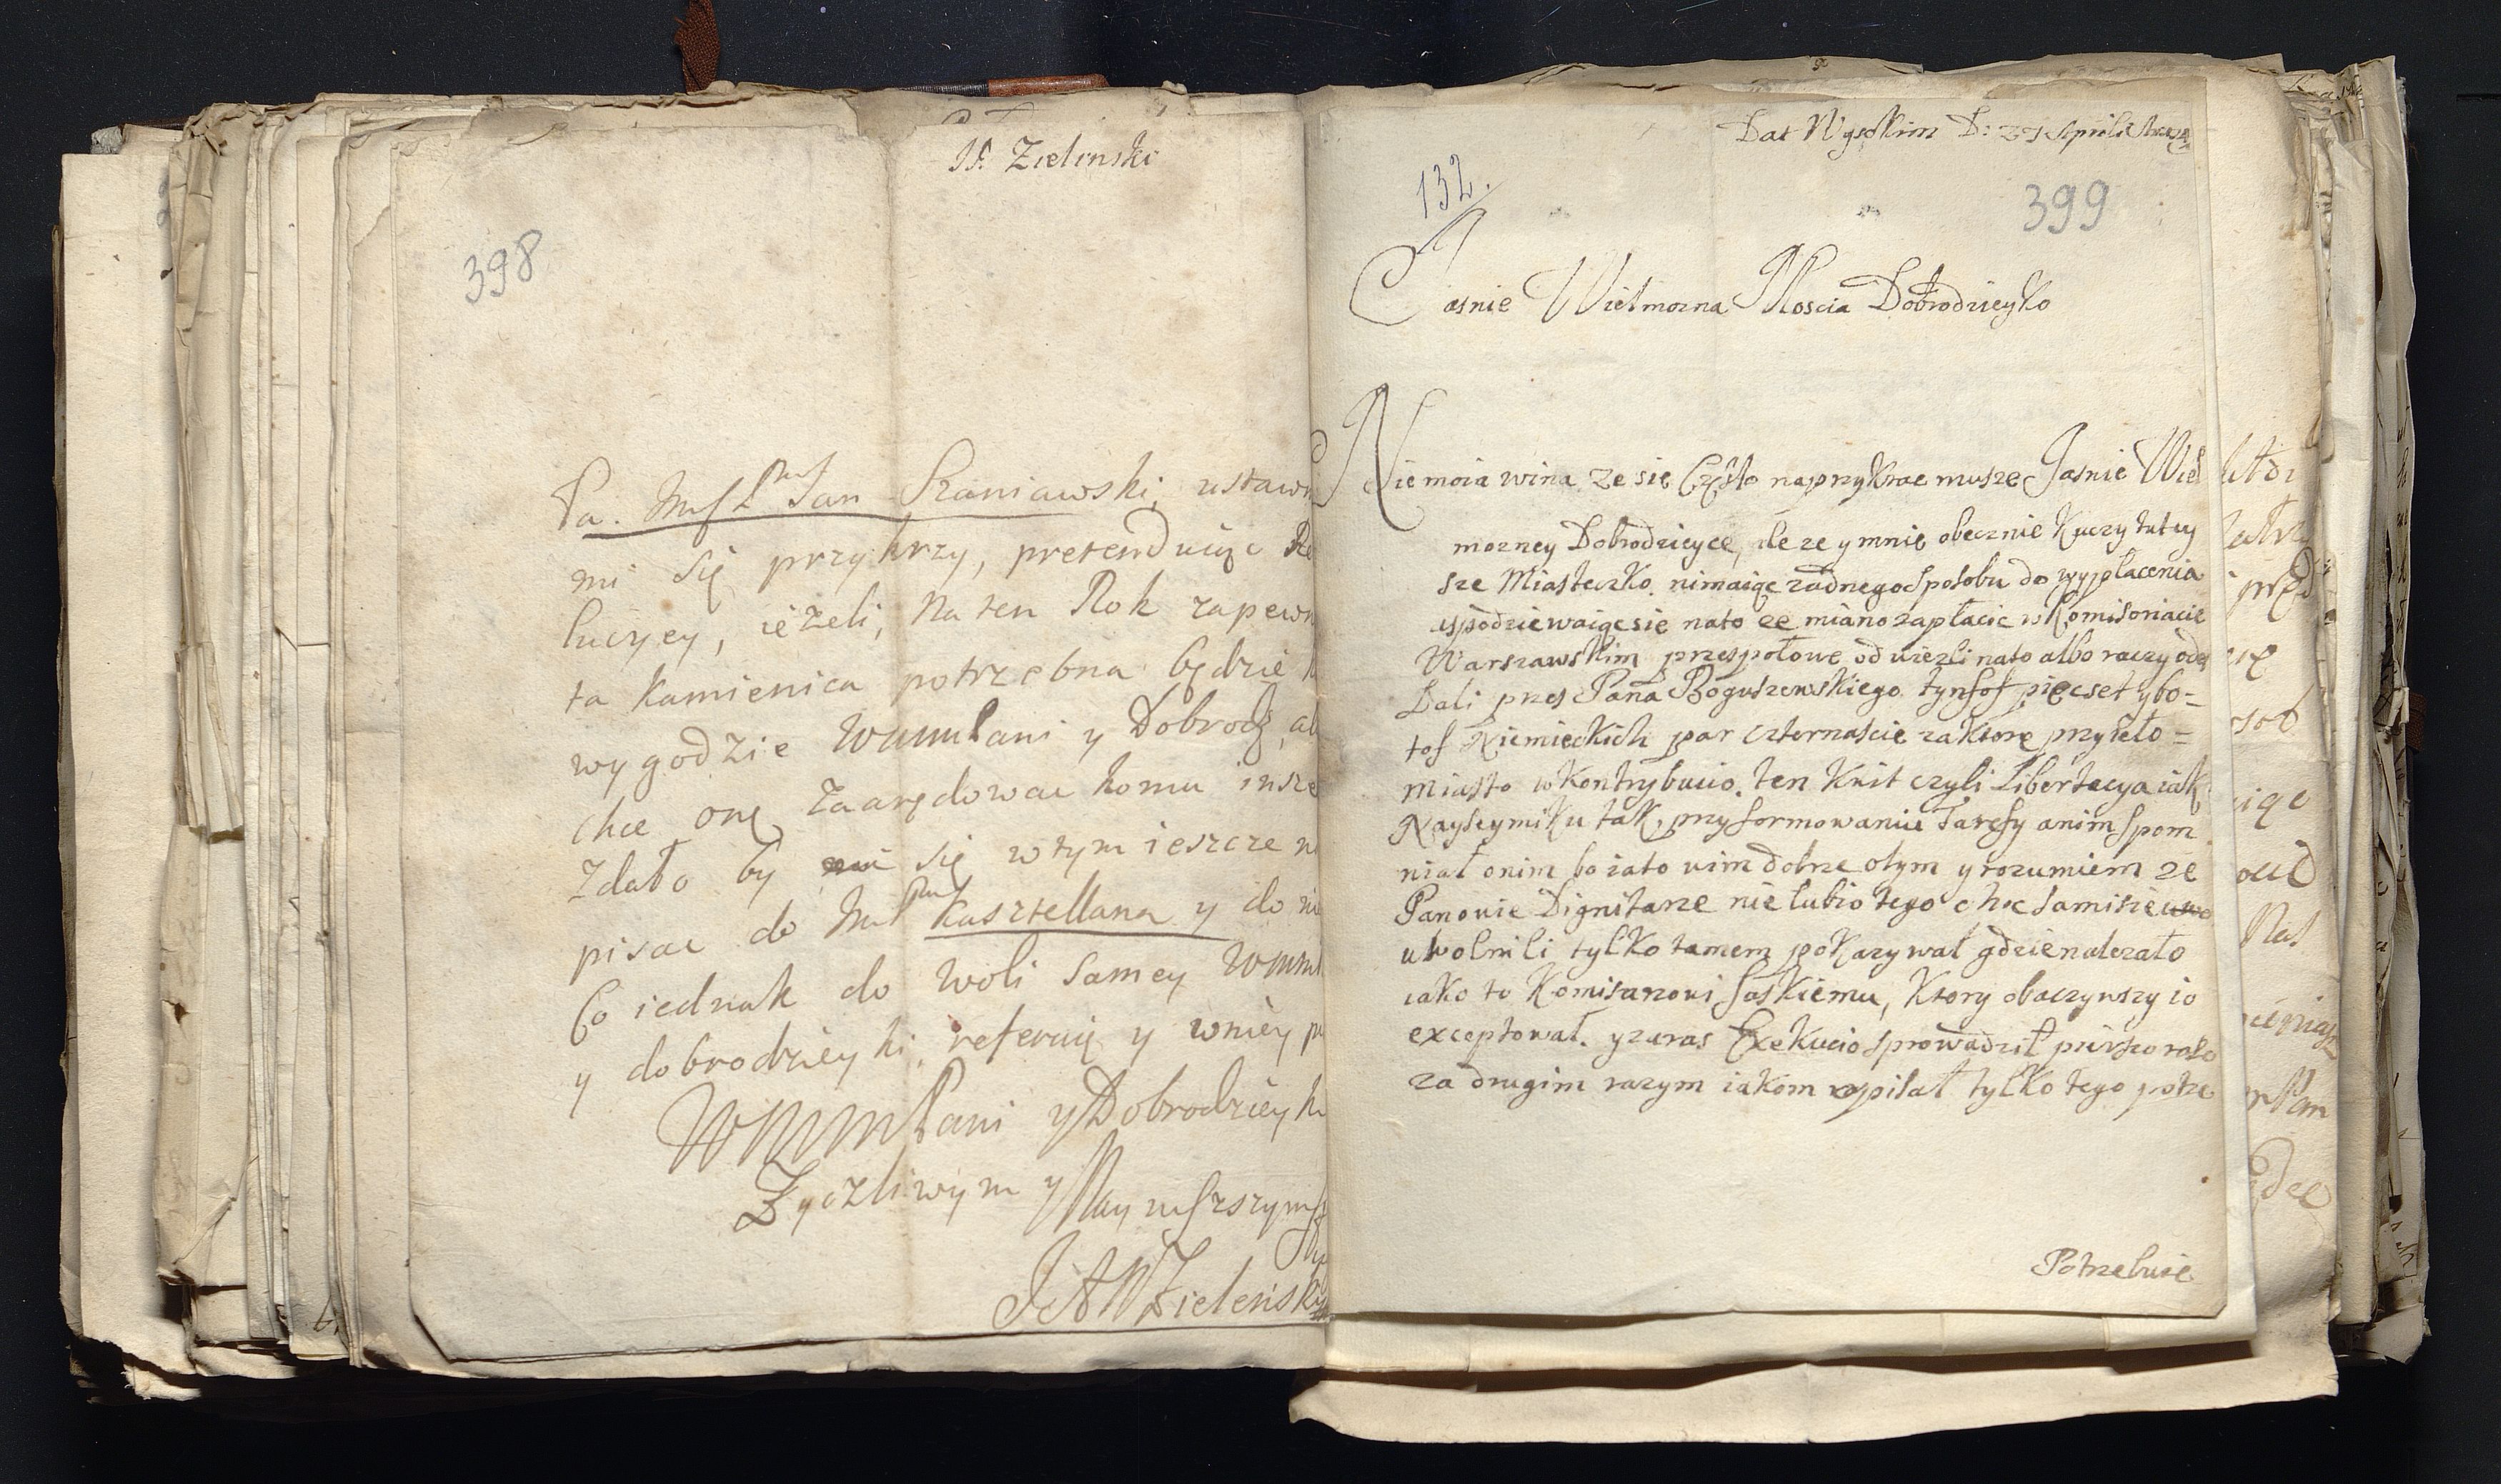 Zielinski
398
Pa. Jan Szaniawski, ustawn
mi się przykrzy, pretenduiąc Re
lucyey, ieżeli, na ten Rok zapewn
ta Kamienica potrzebna będzie
wygodzie WMMPani y Dobrodz, ab
chce onę zaarędowac komu insze
zdało by się w tym ieszcze n
pisac do Kasztellana y do nie
Co iednak do woli samey WMM
y dobrodzieyki, referuię y wniey p
WMMPani y Dobrodzieyki
Zyczliwym y Nay
JAWZielenski
Dat Wysokim D: 27 Aprilis
132.
399
Jasnie Wielmozna Moscia Dobrodzieyko
Nie moia wina ze się Często naprzykrac musze Jasnie Wiel
mozney Dobrodzieyce, ale ze y mnie obecznie Kuczy tutey
sze Miasteczko. nimaiąc zadnego Sposobu do wypłacenia
uspodziewaiąc sie nato ze miano zapłacic w Komisoriacie
Warszawskim przespołowe od wiezli nato albo raczy odd
Dali przes Pana Boguszewskiego tynfof pięcset y bo=
tof Niemieckich par czternascie za ktorę przyieło=
miasto w Kontrybucio. ten Kwit czyli Libertacya iak
Nayseymiku tak, przy formowaniu Taresy anim spom
niał onim bo iato wim dobrze otym y rozumiem ze
Panowie Dignitarze nie lubio tego choc samisie
uwolnili tylko tamem pokazywał gdzie nalezało
iako to Komisarzowi saskiemu, Ktory obaczywszy io
exceptował. y zaras Exekucio sprowadził pirwszo razo
za drugim razym iakom pisał tylko tego potrze
Potrzebuie